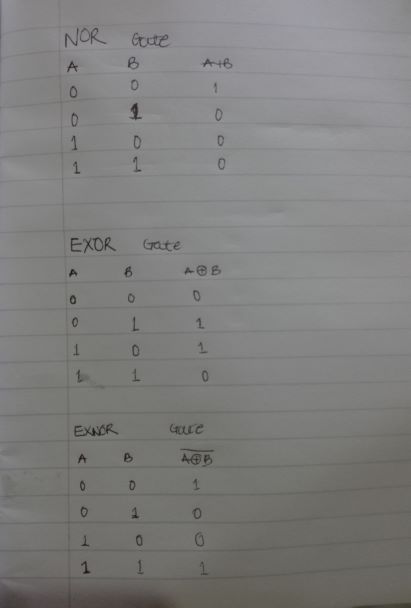 NOR Gate
A B A+B
0 0 1
0 1 0
1 0 0
1 1 0
EXOR Gate
A B A⊕B
0 0 0
0 1 1
1 0 1
1 1 0
EXNOR Gate
A B A̅⊕̅B̅
0 0 1
0 1 0
1 0 0
1 1 1